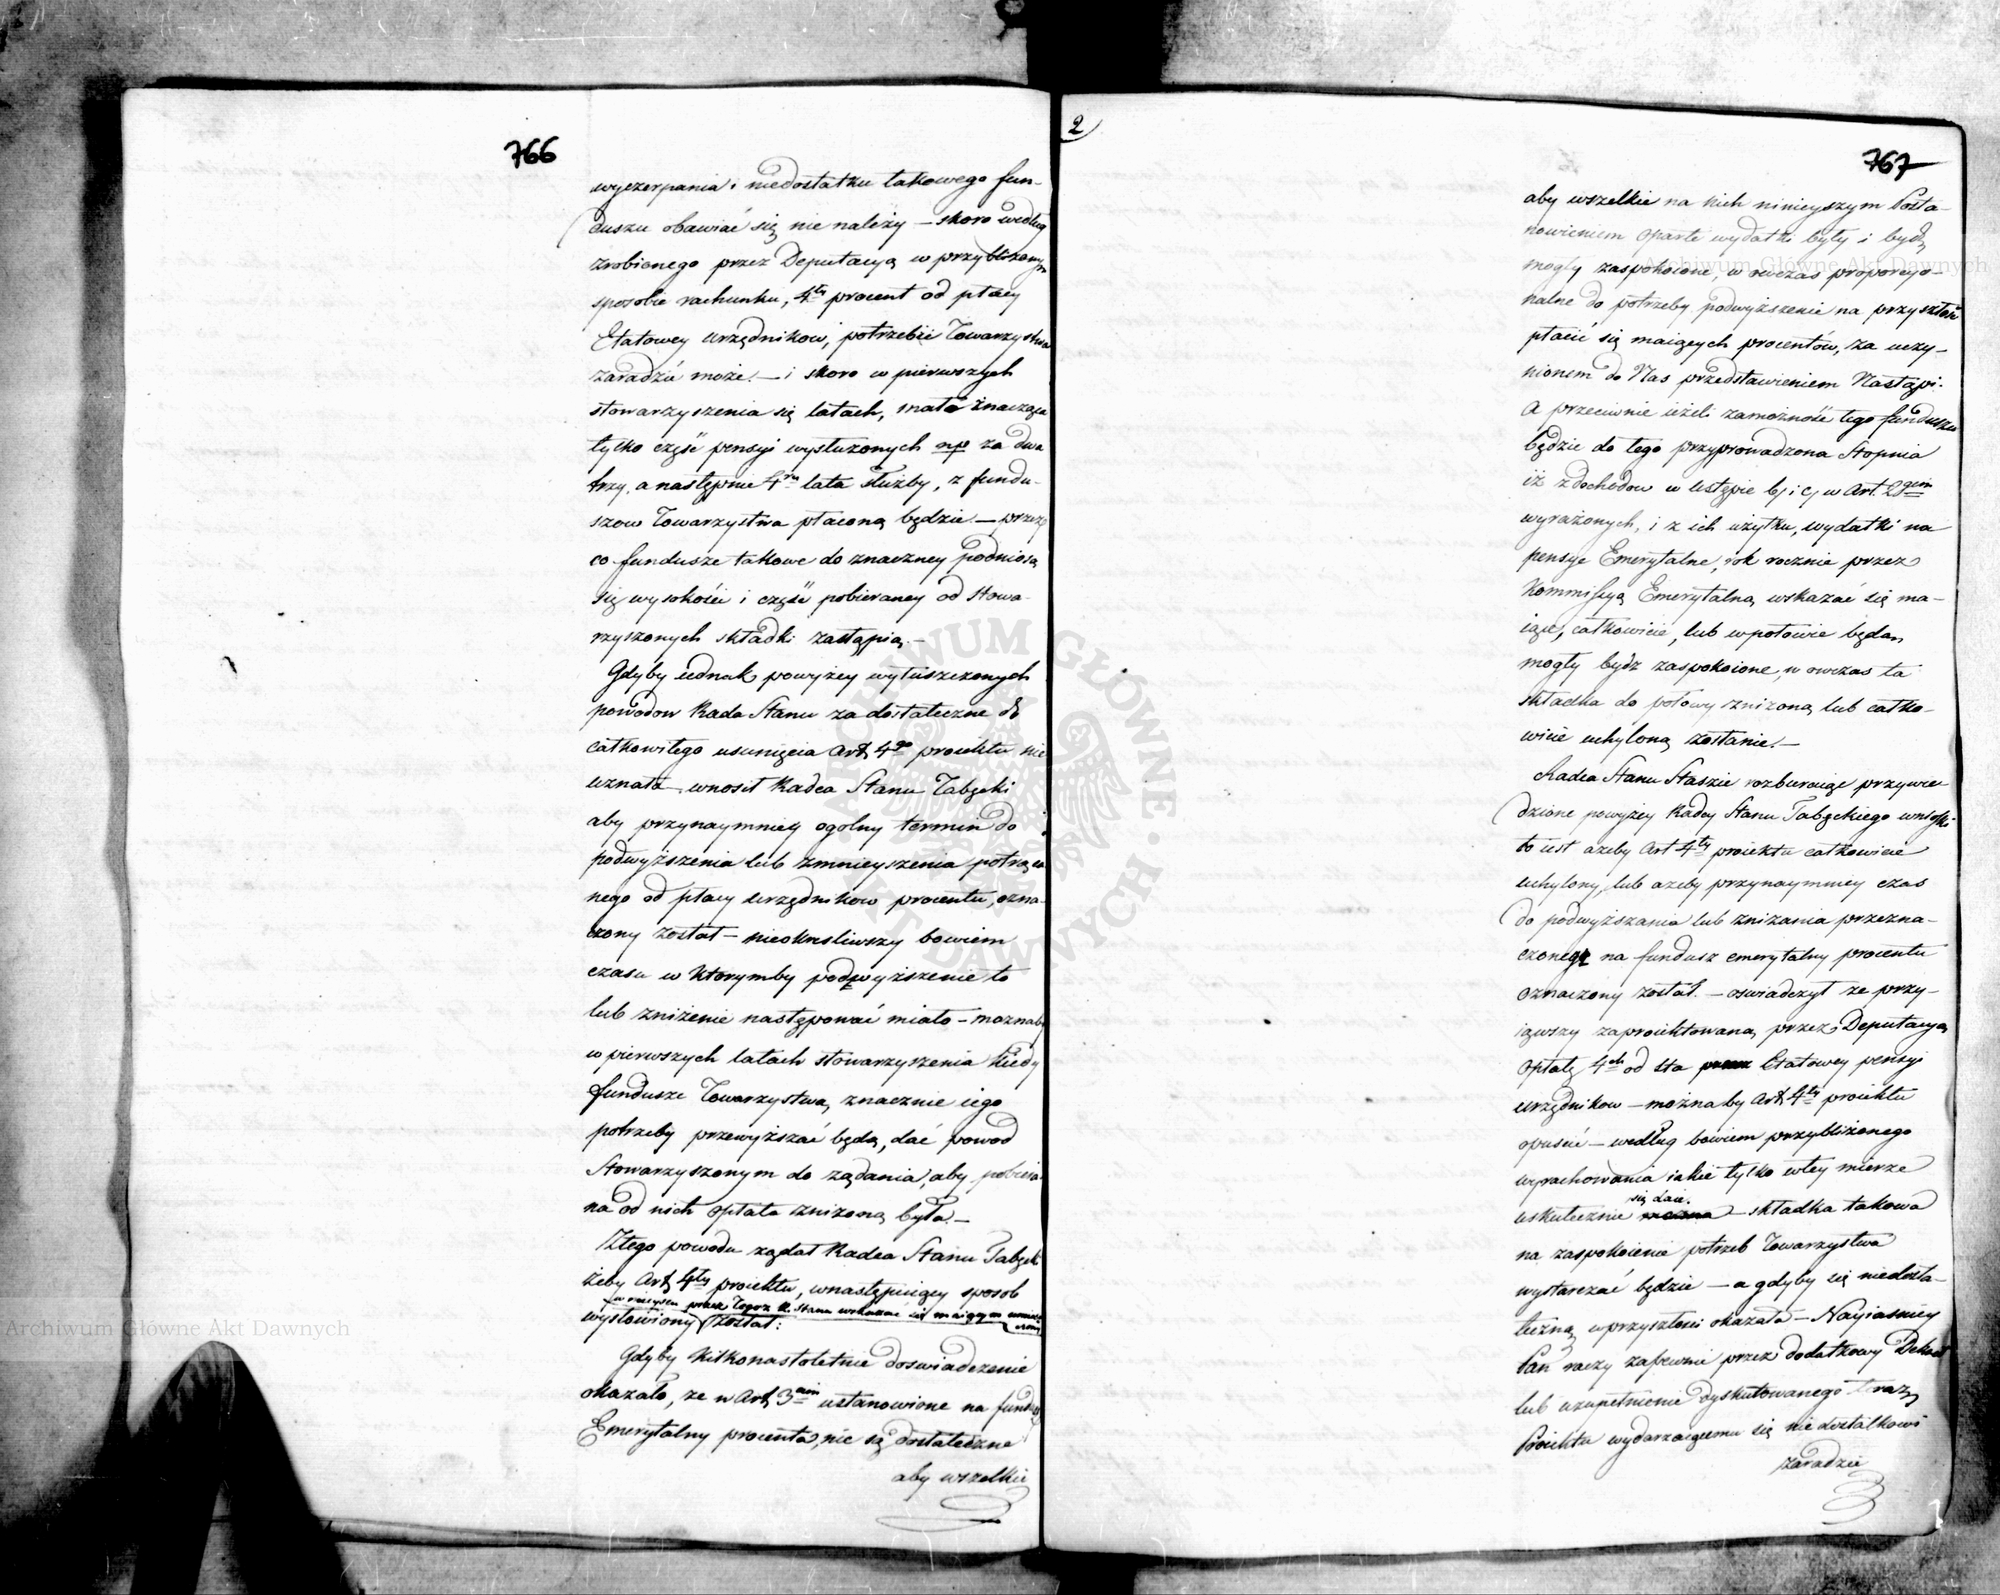 766
wyczerpania i niedostatku takowego fun-
duszu obawiać się nie należy – skoro według
zrobionego przez Deputacyą w przybliżonym
sposobie rachunku, 4ty procent od płacy
Etatowey urzędników, potrzebie Towarzystwa
zaradzić może. – i skoro w pierwszych
stowarzyszenia się latach, mało znacząca
tylko część pensyi wysłużonych np za dwa
trzy, a następnie 4ry lata służby, z fundu-
szow Towarzystwa płaconą będzie. – przez
co fundusze takowe do znaczney podniosą
się wysokości i część pobieraney od Stowa-
rzyszonych składki zastąpią. –
Gdyby iednak powyżey wyłuszczonych
powodow Rada Stanu za dostateczne do
całkowitego usunięcia Art, 4go proiektu nie
uznała – wnosił Radca Stanu Tabęcki
aby przynaymniey ogolny termin do
podwyższenia lub zmnieyszenia potrąca
nego od płacy urzędnikow procentu, ozna-
czony został – nieokreśliwszy bowiem
czasu w ktorymby podwyższenie to
lub zniżenie następować miało – możnaby
w pierwszych latach stowarzyszenia kiedy
fundusze Towarzystwa, znacznie iego
potrzeby przewyższać będą, dać powod
Stowarzyszonym do żądania, aby pobiera-
na od nich opłata zniżoną była. –
Z tego powodu żądał Radca Stanu Tabęcki
żeby Art, 4ty proiektu, w następuiący sposob
w mieyscu przez Tegoż R. Stanu wskazać się maiącym umiesz
czony
wysłowiony został:
Gdyby kilkonastoletnie doświadczenie
okazało, że w Art, 3cim ustanowione na fundusz
Emerytalny procenta, nie są dostateczne
aby wszelkie
2
767
aby wszelkie na nich ninieyszym Posta-
nowieniem oparte wydatki były i bydź
mogły zaspokoione, w owczas proporcyo-
nalne do potrzeby podwyższenie na przyszłość
płacić się maiących procentów, za uczy-
nionem do Nas przedstawieniem Nastąpi.
A przeciwnie ieżeli zamożność tego funduszu
będzie do tego przyprowadzona Stopnia
iż z dochodow w Ustępie b) i c) w Art. 2gim
wyrażonych, i z ich użytku, wydatki na
pensye Emerytalne, rok rocznie przez
Kommissyą Emerytalną wskazać się ma-
iące, całkowicie, lub w połowie będą
mogły bydź zaspokoione, w owczas ta
składka do połowy zniżoną lub całko-
wicie uchyloną zostanie. –
Radca Stanu Staszic rozbieraiąc przywie
dzione powyżey Radcy Stanu Tabęckiego wnioski
to iest ażeby Art 4ty proiektu całkowicie
uchylony, lub ażeby przynaymniey czas
do podwyższania lub zniżania przezna-
czonego na fundusz emerytalny procentu
oznaczony został. – oświadczył że przy-
iąwszy zaproiektowaną przez Deputacyą
Opłatę 4ch od sta Etatowey pensyi
urzędnikow – możnaby Art, 4ty proiektu
opuścić – według bowiem przybliżonego
wyrachowania iakie tylko w tey mierze
się daie.
uskutecznić – składka takowa
na zaspokoienie potrzeb Towarzystwa
wystarczać będzie – a gdyby się niedosta-
teczną w przyszłości okazała – Nayiaśniey
Pan raczy zapewnie przez dodatkowy Dekret
lub uzupełnienie dyskutowanego teraz
Proiektu wydarzaiącemu się niedostatkowi
zaradzić
Archiwum Główne Akt Dawnych
Archiwum Główne Akt Dawnych
ARCHIWUM GŁÓWNE AKT DAWNYCH